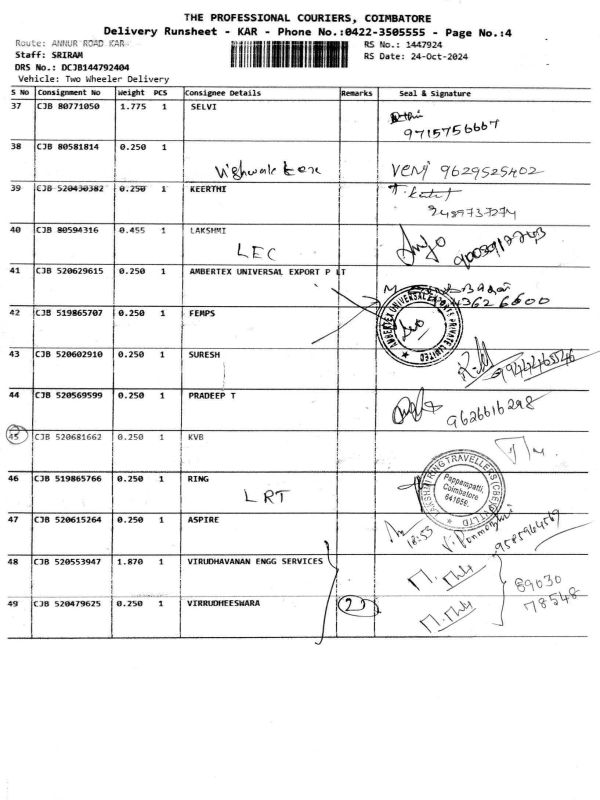 THE PROFESSIONAL COURIERS, COIMBATORE
Delivery Runsheet - KAR - Phone No.:0422-3505555 - Page No.:4
Route: ANNUR ROAD KAR
RS No.: 1447924
Staff: SRIRAM
RS Date: 24-Oct-2024
DRS No.: DCJB144792404
Vehicle: Two Wheeler Delivery
S No Consignment No Weight PCS Consignee Details Remarks Seal & Signature
37 CJB 80771050 1.775 1 SELVI
9715756667
38 CJB 80581814 0.250 1
9629525402
39 CJB 520430382 0.250 1 KEERTHI
2489737274
40 CJB 80594316 0.455 1 LAKSHMI
LEC
41 CJB 520629615 0.250 1 AMBERTEX UNIVERSAL EXPORT P LT
AMBERTEX UNIVERSAL EXPORTS PRIVATE LIMITED
42 CJB 519865707 0.250 1 FEMPS
43 CJB 520602910 0.250 1 SURESH
9944465546
44 CJB 520569599 0.250 1 PRADEEP T
9626616298
45 CJB 520681662 0.250 1 KVB
46 CJB 519865766 0.250 1 RING
LRT
LAKSHMI RING TRAVELLERS (CBE) PVT LTD
Pappampatti,
Coimbatore
641056.
47 CJB 520615264 0.250 1 ASPIRE
18:53
9585964569
48 CJB 520553947 1.870 1 VIRUDHAVANAN ENGG SERVICES
89030
78548
49 CJB 520479625 0.250 1 VIRRUDHEESWARA